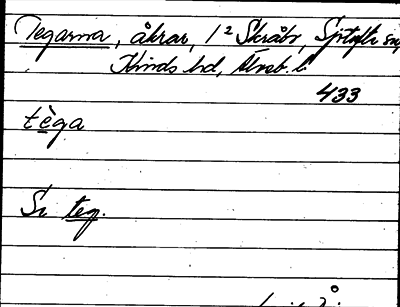 Tegarna, åkrar, 1² Skråbo, Sjötofta sn,
Kinds hd, Älvsb. l.
433
tèga
Se teg.